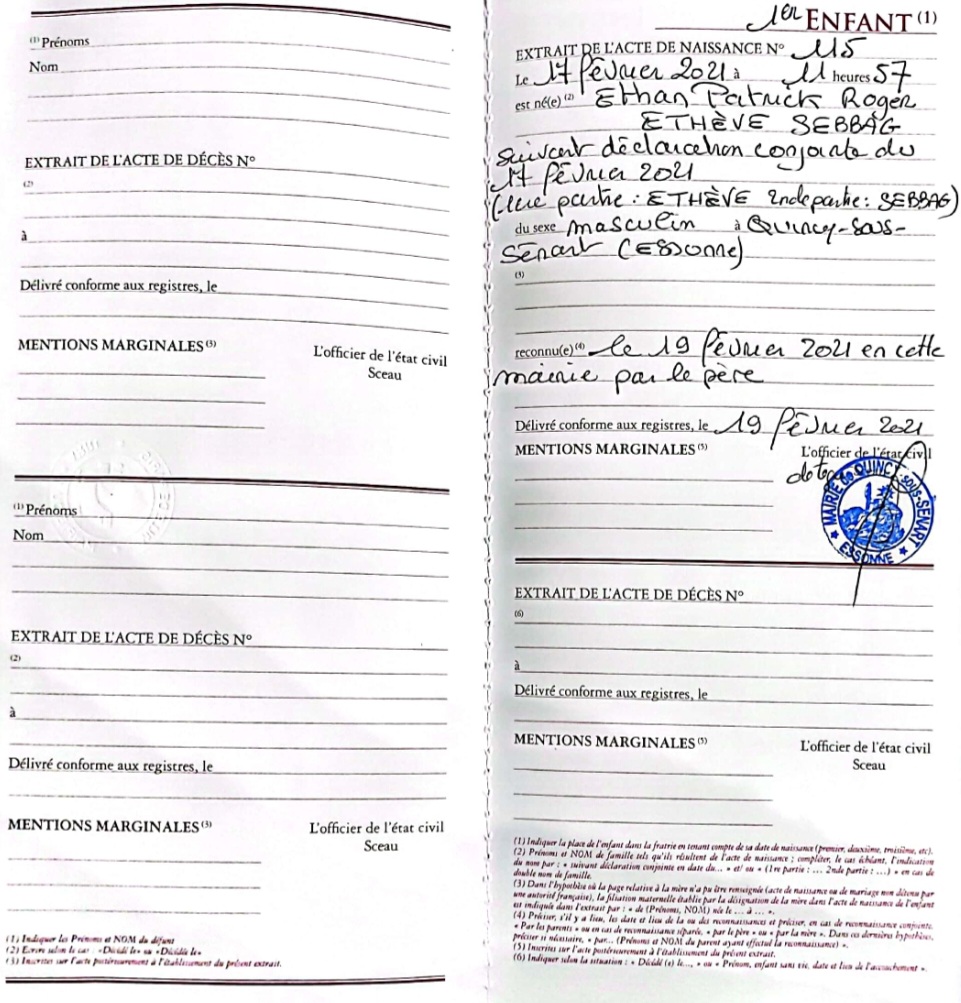 (1) Prénoms
Nom
EXTRAIT DE L'ACTE DE DÉCÈS N°
(2)
à
Délivré conforme aux registres, le
MENTIONS MARGINALES (3)
L'officier de l'état civil
Sceau
(1) Prénoms
Nom
EXTRAIT DE L'ACTE DE DÉCÈS N°
(2)
à
Délivré conforme aux registres, le
MENTIONS MARGINALES (3)
L'officier de l'état civil
Sceau
(1) Indiquer les Prénoms et NOM du défunt
(2) Ecrire selon le cas : «Décédé le» ou «Décédée le»
(3) Inscrites sur l'acte postérieurement à l'établissement du présent extrait.
1er ENFANT (1)
EXTRAIT DE L'ACTE DE NAISSANCE N° 115
Le 17 février 2021 à 11 heures 57
est né(e) (2) Ethan Patrick Roger
ETHÈVE SEBBAG
suivant déclaration conjointe du
17 février 2021
(1ère partie : ETHÈVE 2nde partie : SEBBAG)
du sexe masculin à Quincy-sous-
Sénart (Essonne)
(3)
reconnu(e) (4) le 19 février 2021 en cette
mairie par le père
Délivré conforme aux registres, le 19 février 2021
MENTIONS MARGINALES (5)
L'officier de l'état civil
MAIRIE de QUINCY-sous-SENART
ESSONNE
EXTRAIT DE L'ACTE DE DÉCÈS N°
(6)
à
Délivré conforme aux registres, le
MENTIONS MARGINALES (5)
L'officier de l'état civil
Sceau
(1) Indiquer la place de l'enfant dans la fratrie en tenant compte de sa date de naissance (premier, deuxième, troisième, etc).
(2) Prénoms et NOM de famille tels qu'ils résultent de l'acte de naissance ; compléter, le cas échéant, l'indication
du nom par : « suivant déclaration conjointe en date du... » et/ ou « (1re partie : ... 2nde partie : ...) » en cas de
double nom de famille.
(3) Dans l'hypothèse où la page relative à la mère n'a pu être renseignée (acte de naissance ou de mariage non détenu par
une autorité française), la filiation maternelle établie par la désignation de la mère dans l'acte de naissance de l'enfant
est indiquée dans l'extrait par : « de (Prénoms, NOM) née le ... à ... ».
(4) Préciser, s'il y a lieu, les date et lieu de la ou des reconnaissances et préciser, en cas de reconnaissance conjointe,
« Par les parents » ou en cas de reconnaissance séparée, « par le père » ou « par la mère ». Dans ces dernières hypothèses,
préciser si nécessaire, « par... (Prénoms et NOM du parent ayant effectué la reconnaissance) ».
(5) Inscrites sur l'acte postérieurement à l'établissement du présent extrait.
(6) Indiquer selon la situation : « Décédé (e) le..., » ou « Prénom, enfant sans vie, date et lieu de l'accouchement ».